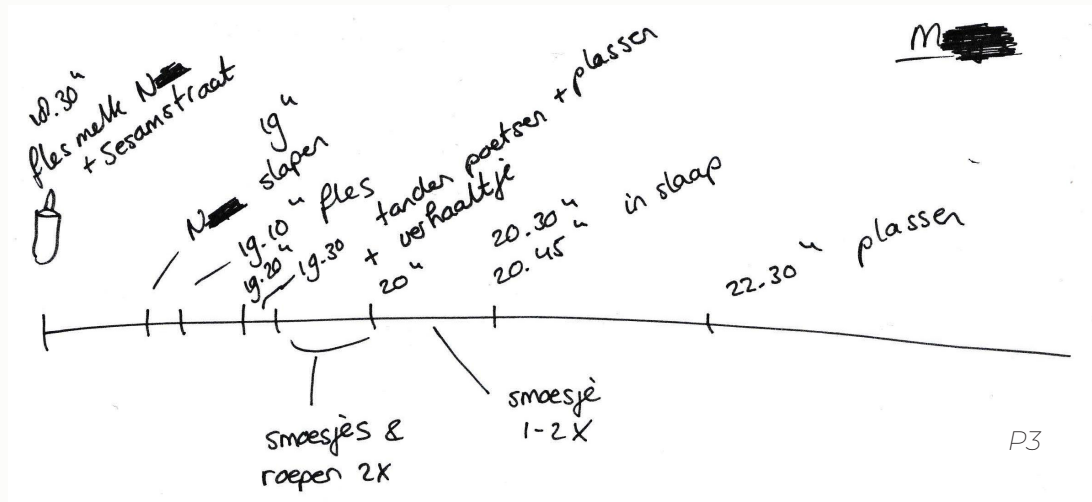 M
18.30u
fles melk N
+ Sesamstraat
N
19u
slapen
19.10u fles
19.20u
19.30
tanden poetsen + plassen
+ verhaaltje
20u
20.30u
20.45u
in slaap
22.30u plassen
smoesjes &
roepen 2x
smoesje
1-2x
P3